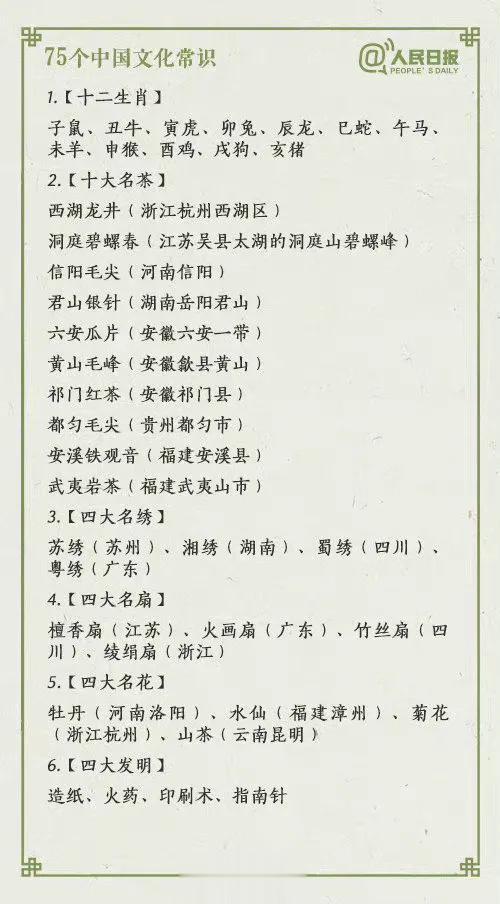 75个中国文化常识
@人民日报
PEOPLE'S DAILY
1.【十二生肖】
子鼠、丑牛、寅虎、卯兔、辰龙、巳蛇、午马、
未羊、申猴、酉鸡、戌狗、亥猪
2.【十大名茶】
西湖龙井（浙江杭州西湖区）
洞庭碧螺春（江苏吴县太湖的洞庭山碧螺峰）
信阳毛尖（河南信阳）
君山银针（湖南岳阳君山）
六安瓜片（安徽六安一带）
黄山毛峰（安徽歙县黄山）
祁门红茶（安徽祁门县）
都匀毛尖（贵州都匀市）
安溪铁观音（福建安溪县）
武夷岩茶（福建武夷山市）
3.【四大名绣】
苏绣（苏州）、湘绣（湖南）、蜀绣（四川）、
粤绣（广东）
4.【四大名扇】
檀香扇（江苏）、火画扇（广东）、竹丝扇（四
川）、绫绢扇（浙江）
5.【四大名花】
牡丹（河南洛阳）、水仙（福建漳州）、菊花
（浙江杭州）、山茶（云南昆明》
6.【四大发明】
造纸、火药、印刷术、指南针